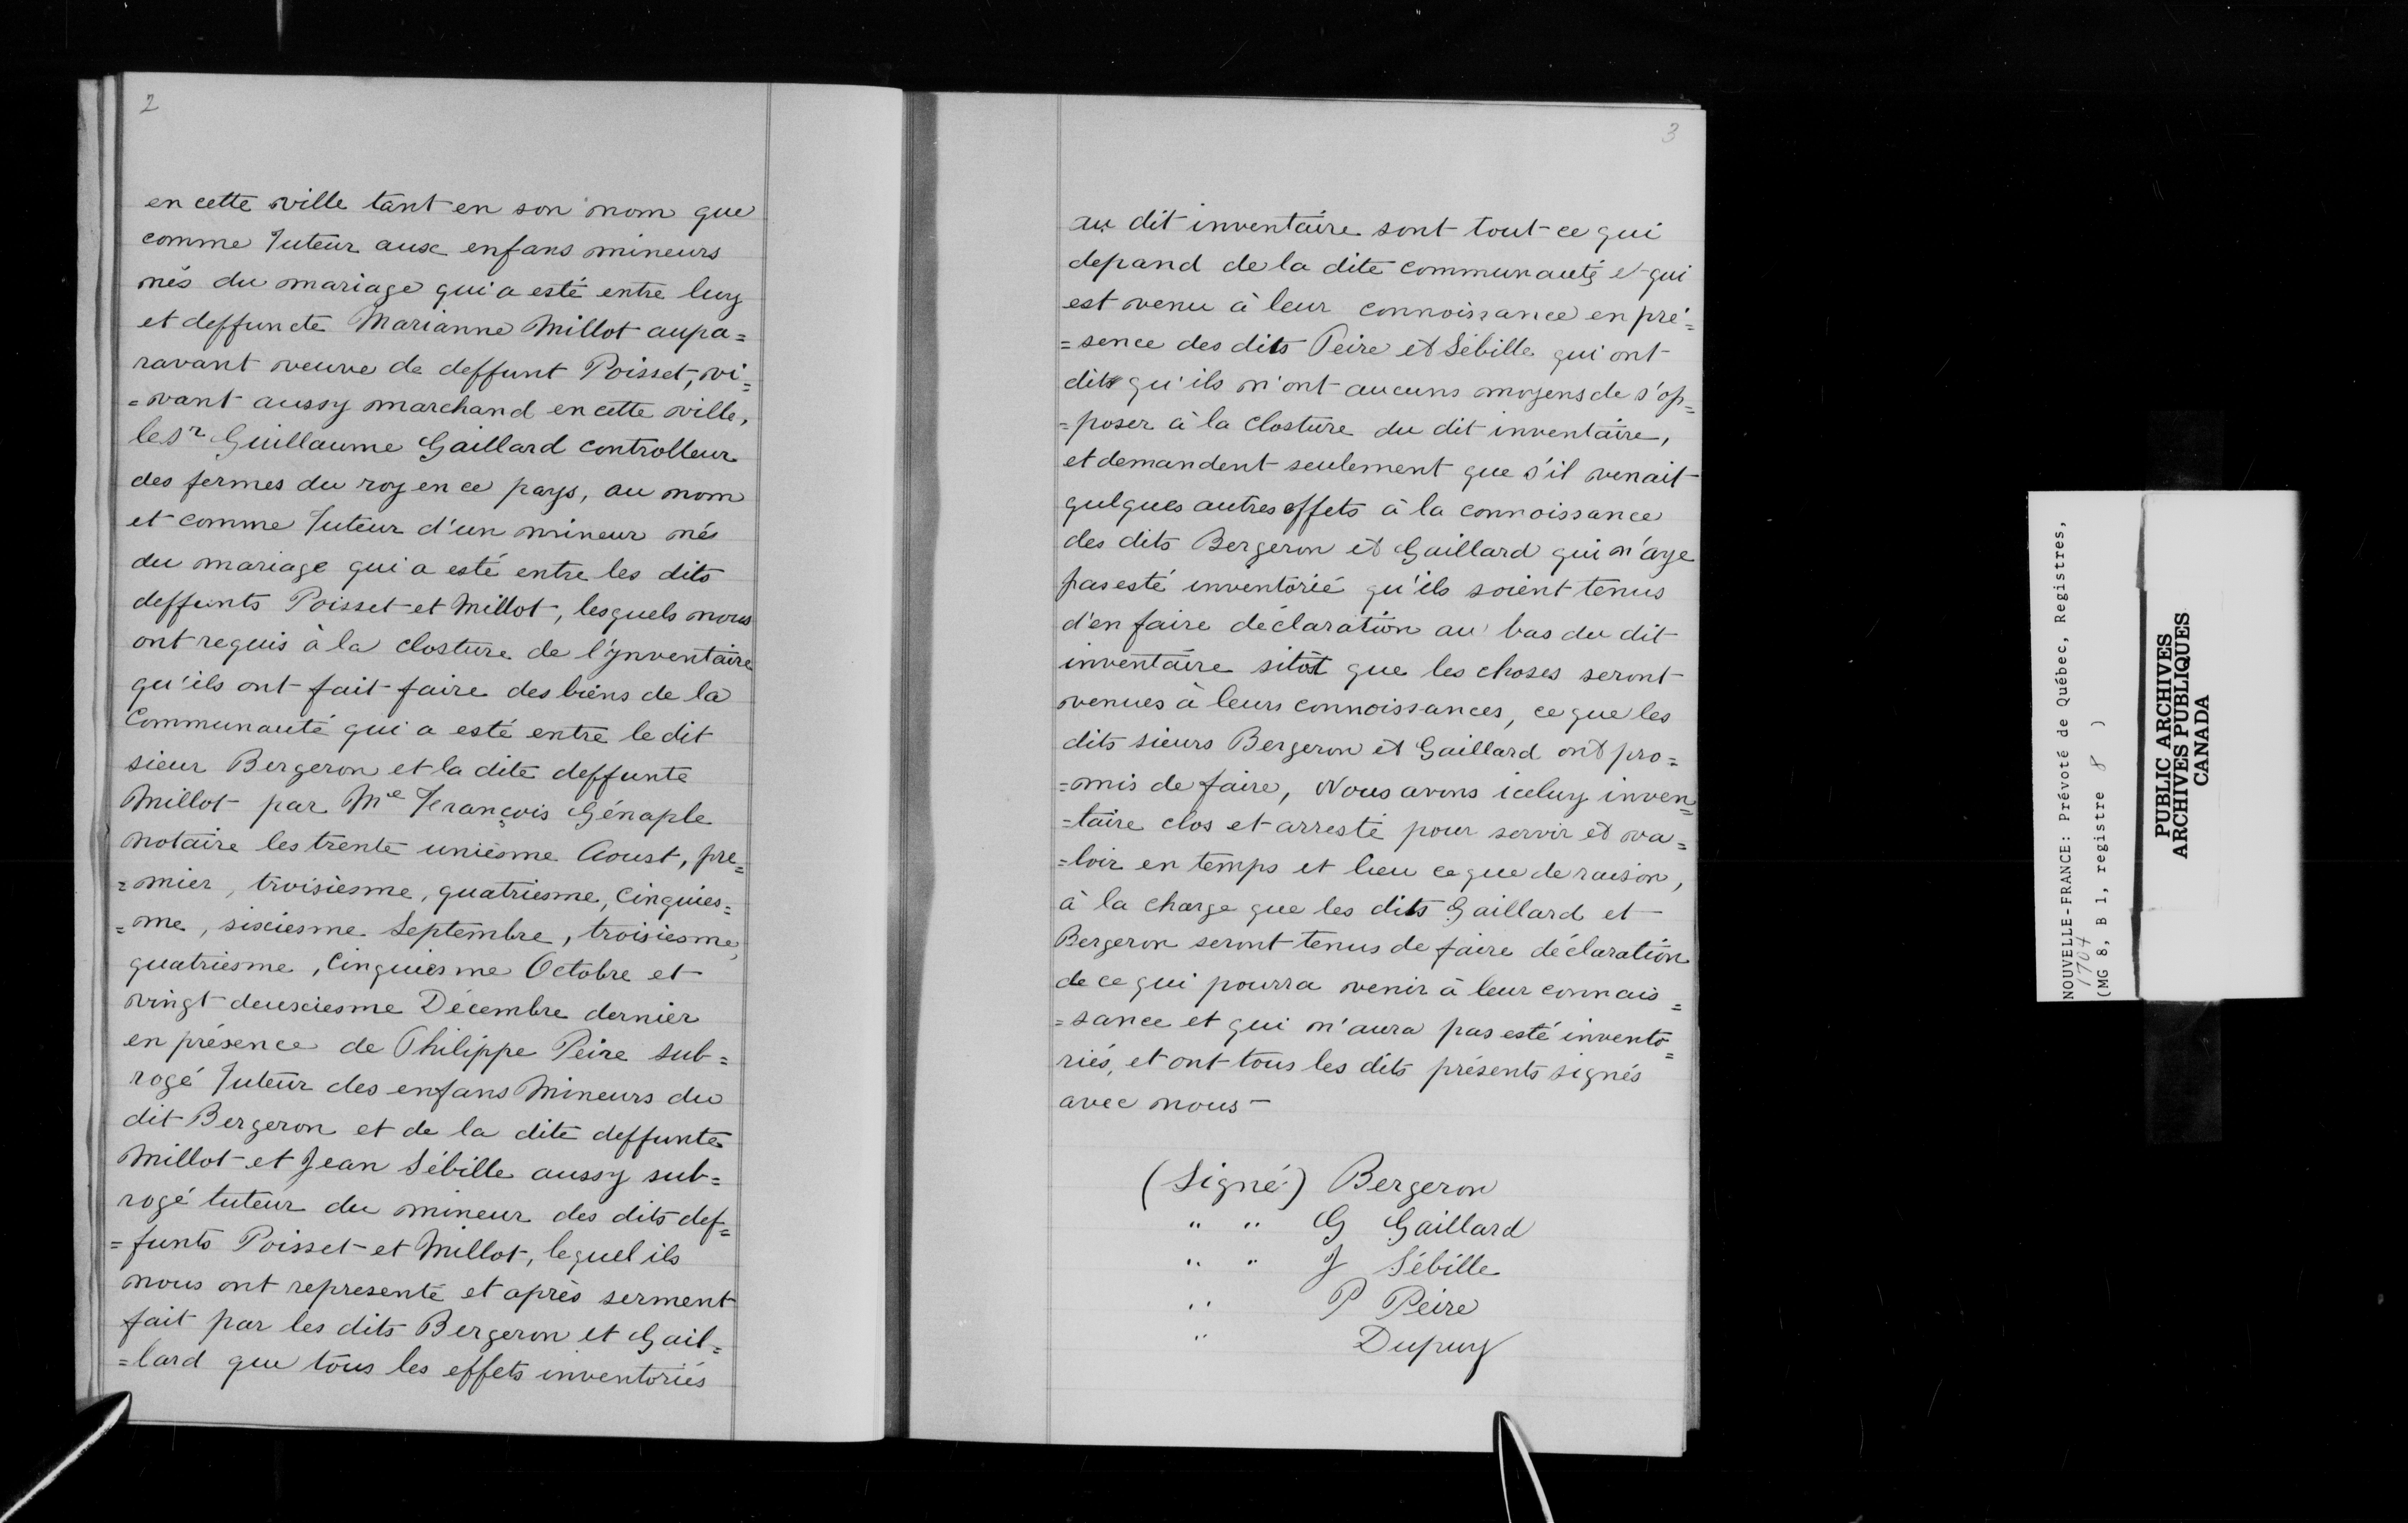 2
en cette ville tant en son nom que
comme Tuteur aux enfans mineurs
nés du mariage qui a esté entre luy
et deffuncte Marianne Millot aupa=
ravant veuve de deffunt Poisset, vi=
=vant aussy marchand en cette ville,
le Sr Guillaume Gaillard controlleur
des fermes du roy en ce pays, au nom
et comme Tuteur d'un mineur nés
du mariage qui a esté entre les dits
deffunts Poisset et Millot, lesquels nous
ont requis à la closture de l'ynventaire
qu'ils ont fait faire des biens de la
Communauté qui a esté entre le dit
sieur Bergeron et la dite deffunte
Millot par Me François Génaple
notaire les trente uniesme Aoust, pre=
=mier, troisiesme, quatriesme, Cinquies=
=me, sixiesme Septembre, troisiesme,
quatriesme, Cinquiesme Octobre et
vingt deuxiesme Décembre dernier
en présence de Philippe Peire sub=
rogé Tuteur des enfans Mineurs du
dit Bergeron et de la dite deffunte
Millot et Jean Sébille aussy sub=
rogé tuteur du mineur des dits def=
=funts Poisset et Millot, lequel ils
nous ont representé et après serment
fait par les dits Bergeron et Gail=
=lard que tous les effets inventoriés
3
au dit inventaire sont tout ce qui
depand de la dite communauté et qui
est venu à leur connoissance en pré=
=sence des dits Peire et Sébille qui ont
dit qu'ils n'ont aucuns moyens de s'op=
=poser à la closture du dit inventaire,
et demandent seulement que s'il venait
quelques autres effets à la connoissance
des dits Bergeron et Gaillard qui n'aye
pas esté inventorié qu'ils soient tenus
d'en faire déclaration au bas du dit
inventaire sitôt que les choses seront
venues à leurs connoissances, ce que les
dits sieurs Bergeron et Gaillard ont pro=
=mis de faire, Nous avons iceluy inven=
=taire clos et arresté pour servir et va=
=loir en temps et lieu ce que de raison,
à la charge que les dits Gaillard et
Bergeron seront tenus de faire déclaration
de ce qui pourra venir à leur connais=
=sance et qui n'aura pas esté invento=
riés, et ont tous les dits présents signés
avec nous-
(Signé) Bergeron
" " G Gaillard
" " J Sébille
" P Peire
" Dupuy
NOUVELLE-FRANCE: Prévoté de Québec, Registres,
1704
(MG 8, B 1, registre 8 )
PUBLIC ARCHIVES
ARCHIVES PUBLIQUES
CANADA